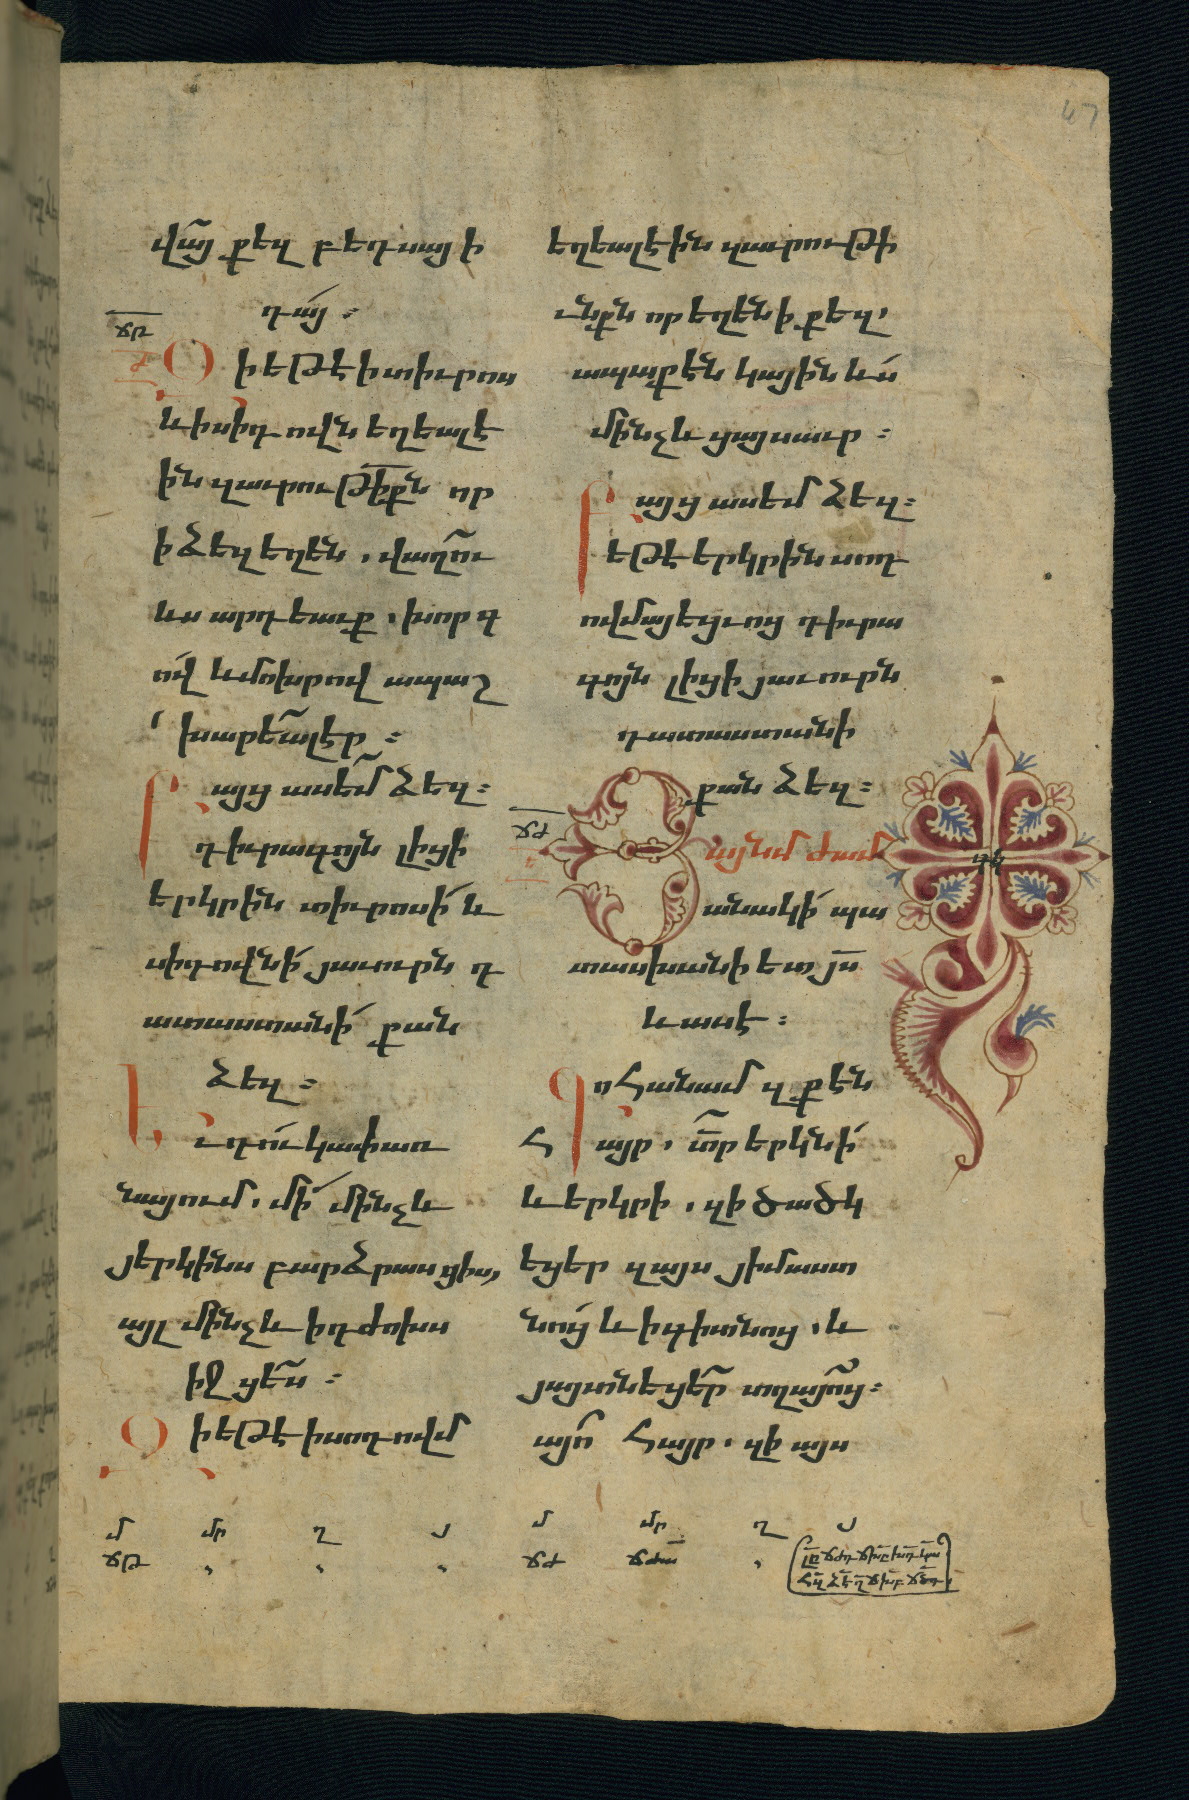 47
վա՜յ քեզ բեդսայի
դա՛յ ։
ՃԹ
Զի եթէ ի տիւրոս
և ի սիդովն եղեալէ
ին զաւրութի̅քն որ
ի ձեզ եղեն , վաղո՜ւ
ևս արդեաւք , խորգ
ո՛վ և մոխրով ապաշ
խարե՜ալ էր ։
Բայց ասեմ ձեզ ։
դիւրագոյն լիցի
երկրին տիւրոսի՛ և
սիդովնի՛ յաւուրն դ
ատաստանի՛ քան
ձեզ ։
Եւ դո՛ւ կափառ
նայում , մի՛ մինչև
յերկինս բարձրասցիս ,
այլ մինչև ի դժոխս
իջցե՜ս ։
Զի եթէ ի սոդովմ
եղեալ էին զաւրութի
ւնքն որ եղեն ի քեզ ,
ապաքէն կային ևս
մինչև ցայսաւր ։
Բայց ասեմ ձեզ ։
եթէ երկրին սոդ
ովմայեցւոց դիւրա
գոյն լիցի յաւուրն
դատաստանի
քան ձեզ ։
ՃԺ
Յայնմ ժամ
անակի՛ պա
տասխանի ետ յ̅ս
և ասէ ։
Գոհանամ զքէն
Հայր , տ̅ր երկնի՛
և երկրի , զի ծածկ
եցեր զայս յիմաստ
նո՛ց և ի գիտնոց , և
յայտնեցե՜ր տղայո՜ց ։
այո՛ Հայր , զի այս
մ մր ղ յ մ մր ղ յ
ՃԹ ՃԺ